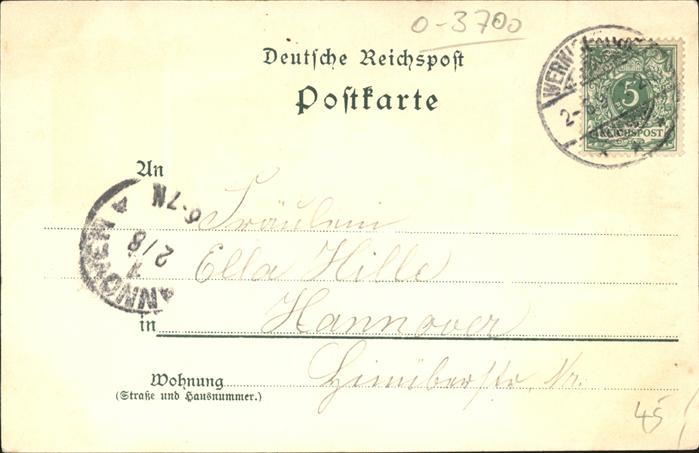 0-3700
Deutsche Reichspost
Postkarte
5
REICHSPOST
An
Fräulein
6-7N
2/8
HANNOVER
Ella Hille
in Hannover
Wohnung
(Straße und Hausnummer.)
45